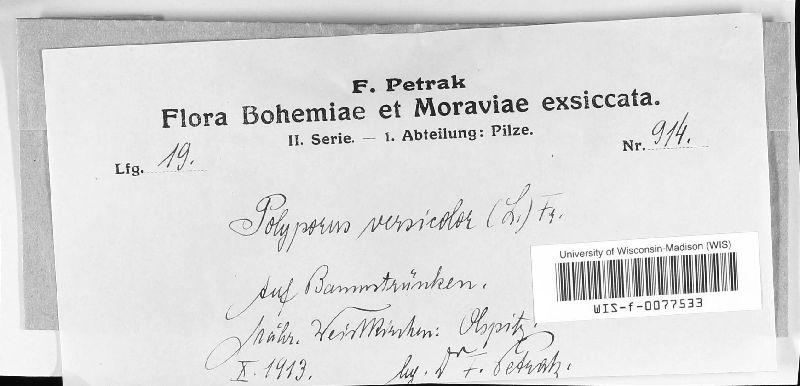 F. Petrak
Flora Bohemiae et Moraviae exsiccata.
II. Serie. — 1. Abteilung: Pilze.
Lfg. 19.
Nr. 914.
Polyporus versicolor (L.) Fr.
University of Wisconsin-Madison (WIS)
WIS-f-0077533
Auf Baumstrünken.
Mähr. Weisskirchen: Olspitz.
X. 1913.
leg. Dr F. Petrak.